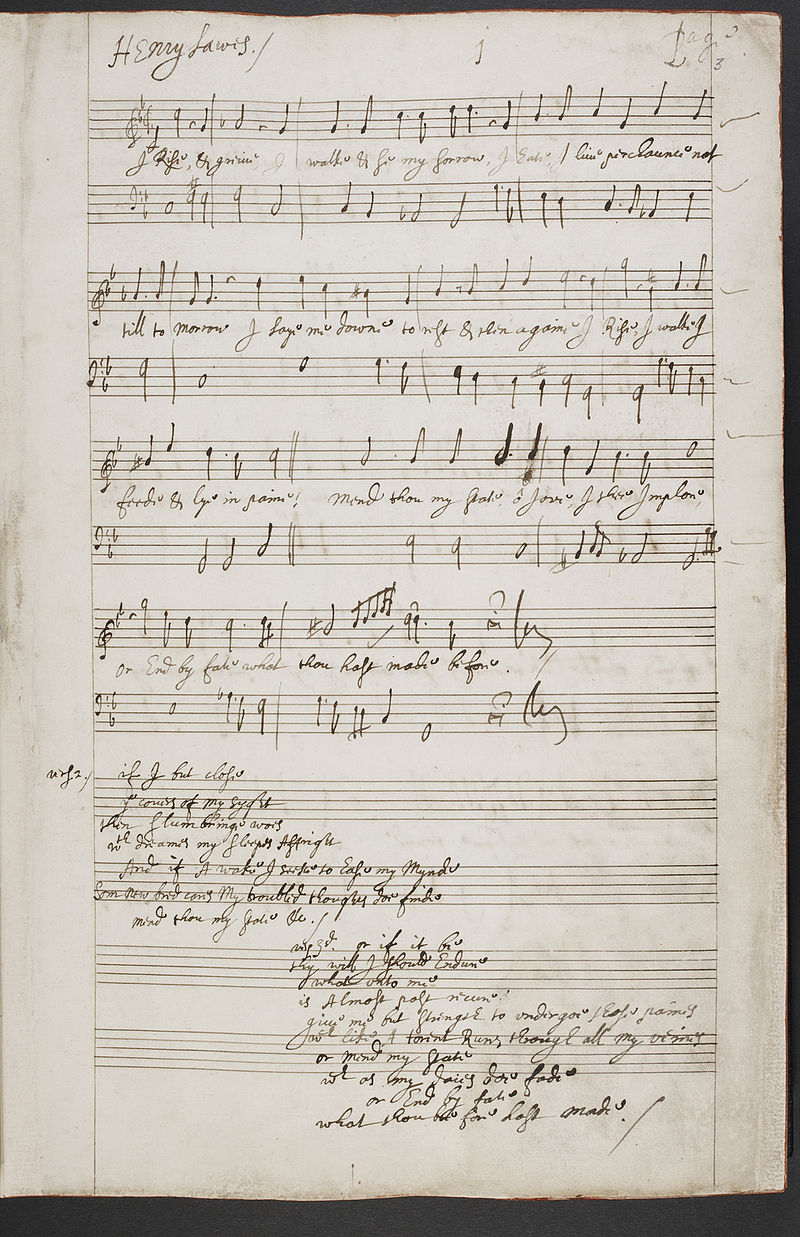 Henry Lawes./ 1 Page
3
I Rise, & grieve, I walke & se my sorrow, I Eate, I live perchaunce not
till to morrow I laye me downe to rest & then againe I Rise, I walke I
feede & lye in paine! Mend thou my state, ô Jove, I thee Implore,
or End by fate what thou hast made before.
vers 2./ if I but close
yᵉ covers of my syght
then slumbringe woes
wᵗʰ dreames my sleeps Affright
And if A wake I seeke to Ease my Mynde
Som New bred cares My troubled thoughts doe finde
mend thou my state &c./
vers 3ᵈ. or if it be
thy will I should Endure
what unto me
is Almost past recure!
give me but strength to undergoe those paines
wᶜʰ like A torent Runs through all my veines
or mend my state
wᶜʰ as my daies doe fade
or End by fate
what thou before hast made./